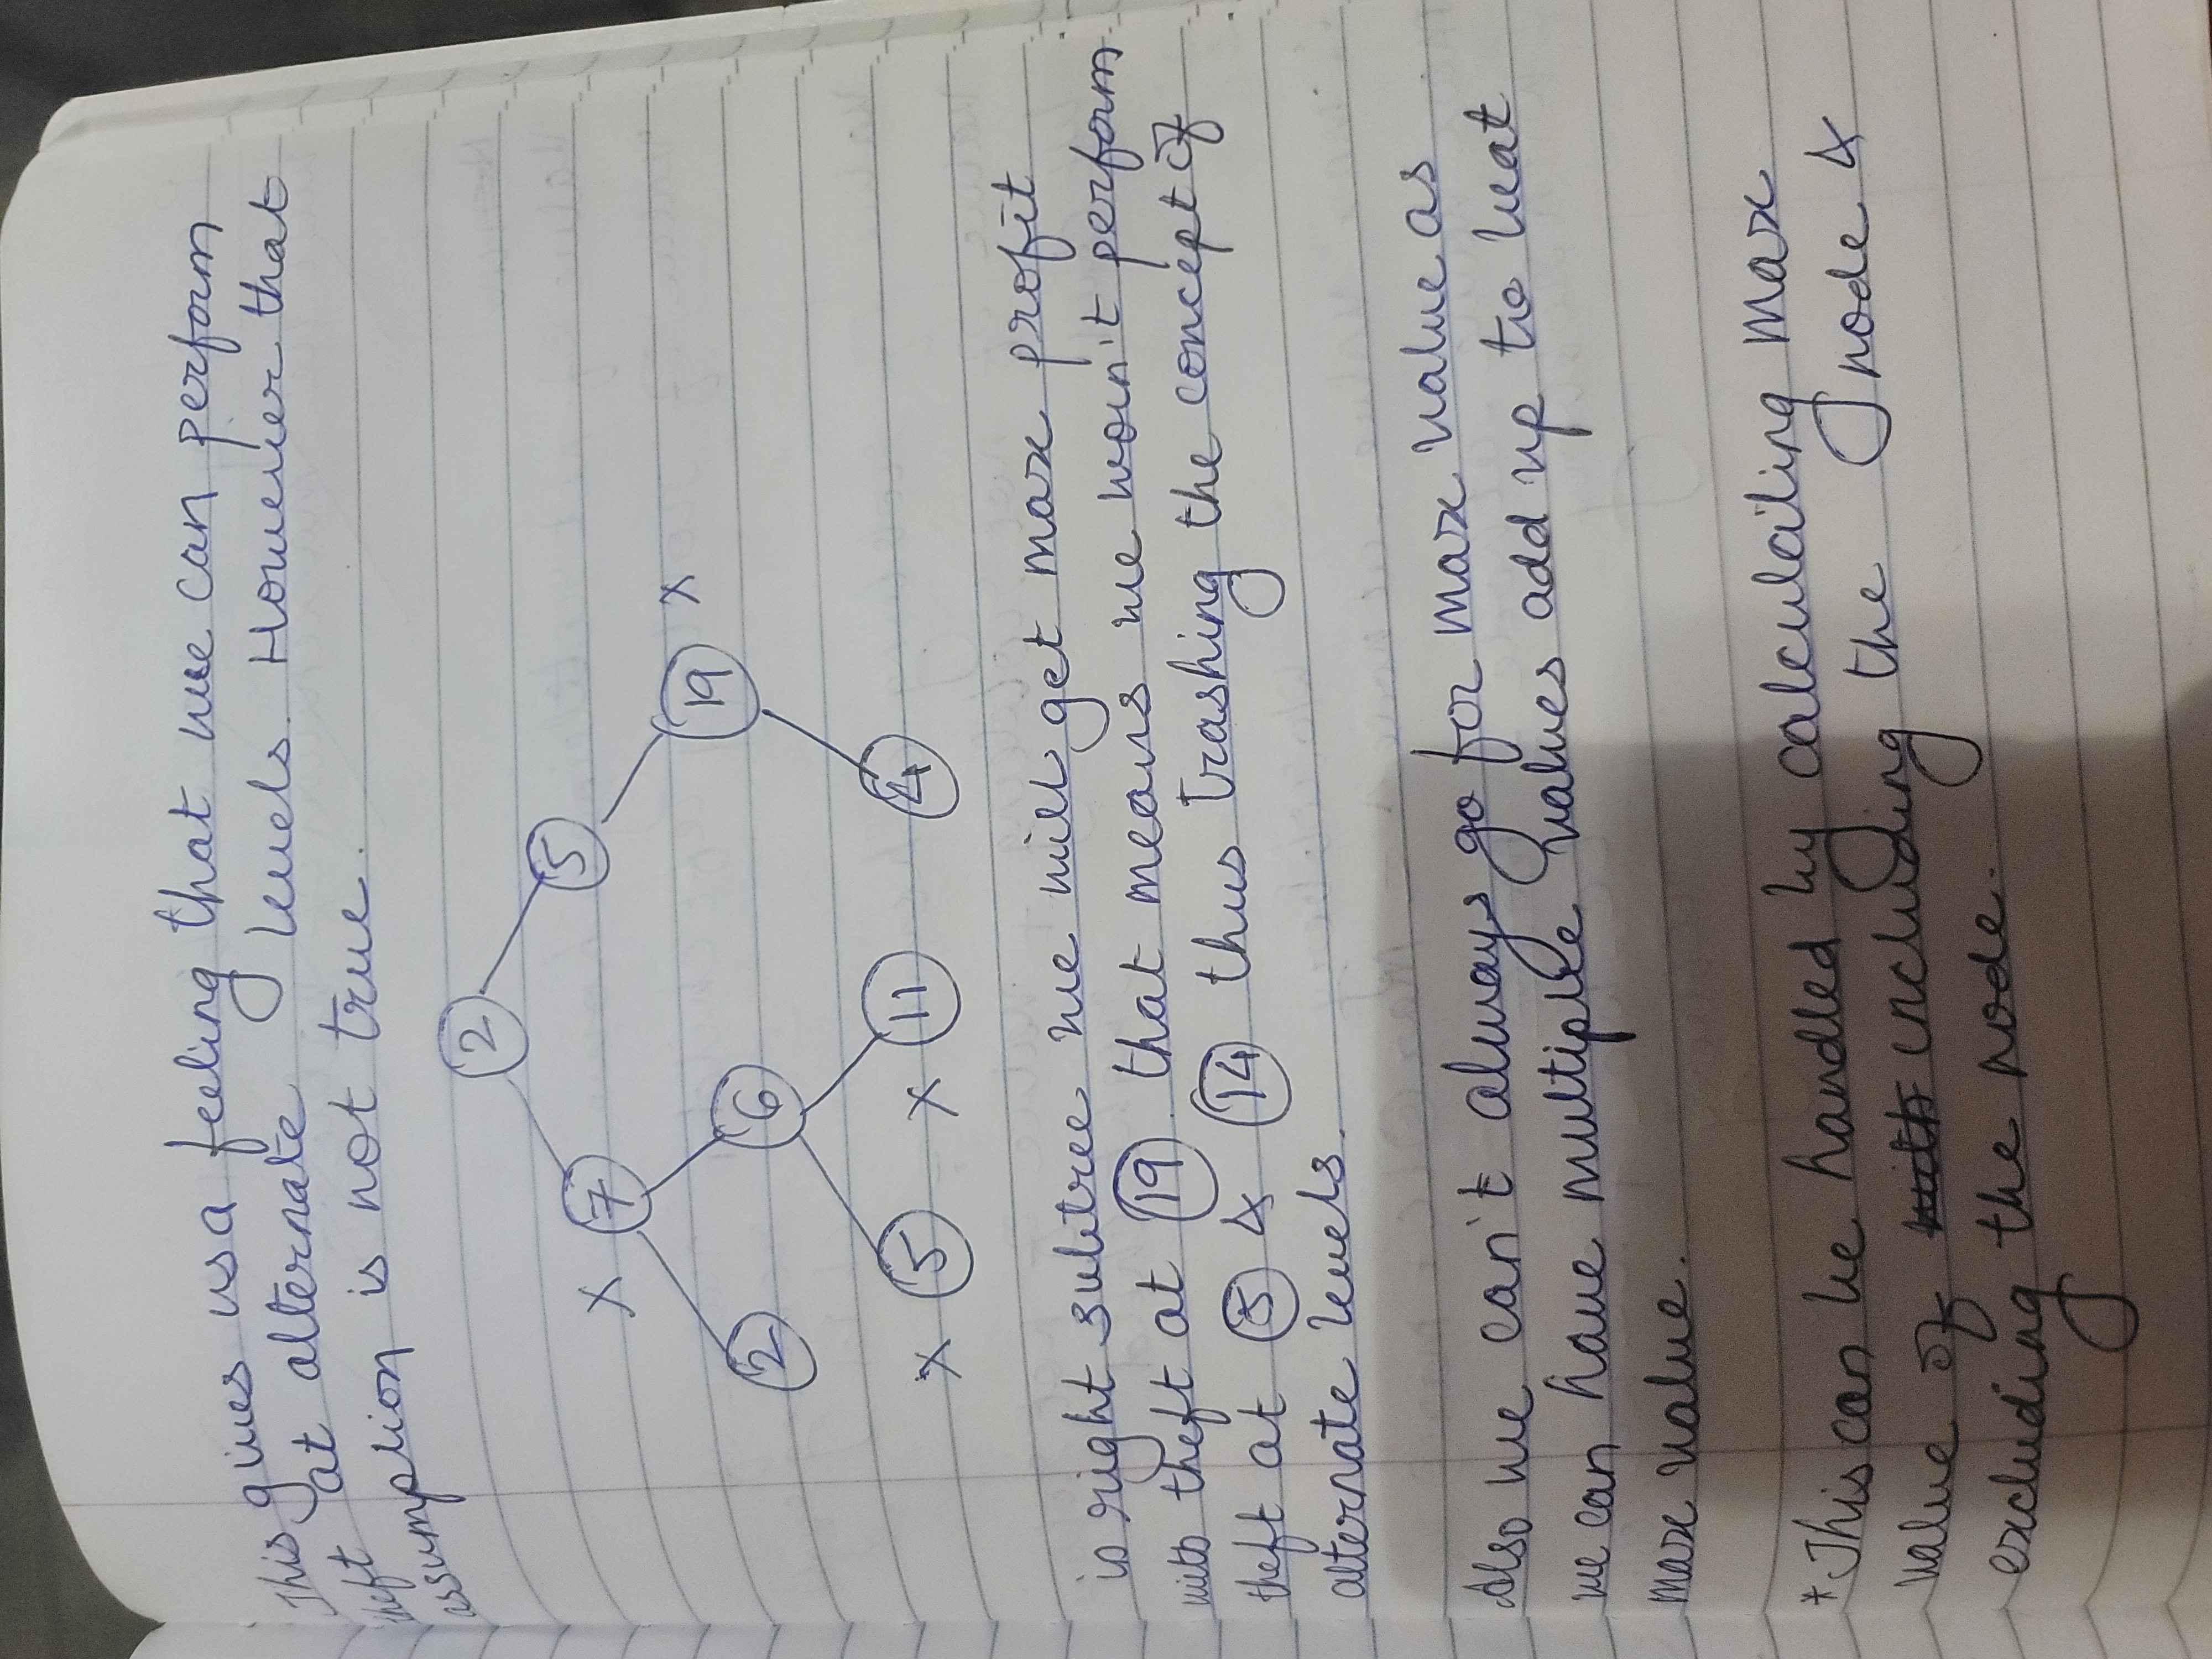 This gives us a feeling that we can perform
theft at alternate levels. However that
assumption is not true.
2
7 5
X
19 X
2 6
X 5 X 11 4
is right subtree we will get max profit
with theft at 19. that means we won't perform
theft at 5 & 14 thus trashing the concept of
alternate levels.
Also we can't always go for max value as
we can have multiple values add up to beat
max value.
* This can be handled by calculating max
value of including the node &
excluding the node.